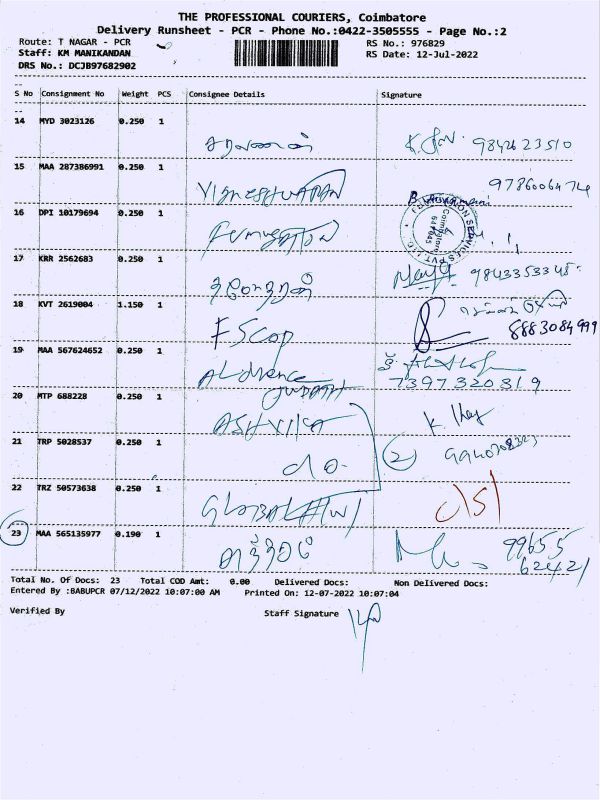 THE PROFESSIONAL COURIERS, Coimbatore
Delivery Runsheet - PCR - Phone No.:0422-3505555 - Page No.:2
Route: T NAGAR - PCR
RS No.: 976829
Staff: KM MANIKANDAN
RS Date: 12-Jul-2022
DRS No.: DCJB97682902
S No Consignment No Weight PCS Consignee Details Signature
14 MYD 3023126 0.250 1
சரவணன் 9842623510
15 MAA 287386991 0.250 1
VIGNESHWARAN 9786006474
16 DPI 10179694 0.250 1
FUMIGATION
17 KRR 2562683 0.250 1
9843353348
18 KVT 2619004 1.150 1
FScop 8883084999
19 MAA 567624652 0.250 1
7397320319
20 MTP 688228 0.250 1
ASHVIKA
21 TRP 5028537 0.250 1
do. 2
22 TRZ 50573638 0.250 1
GLOBAL
23 MAA 565135977 0.190 1
99655
62421
Total No. Of Docs: 23 Total COD Amt: 0.00 Delivered Docs: Non Delivered Docs:
Entered By :BABUPCR 07/12/2022 10:07:00 AM Printed On: 12-07-2022 10:07:04
Verified By Staff Signature